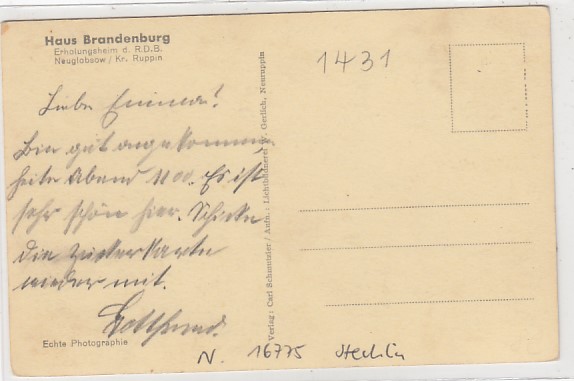 Haus Brandenburg
Erholungsheim d. R.D.B.
Neuglobsow / Kr. Ruppin
1431
Liebe Emma!
Bin gut angekommen
heute Abend 1100. Es ist
sehr schön hier. Schicke
die Zuckerkarte
wieder mit.
Verlag: Carl Schmutzler / Anfn.: Lichtbildnerei Gerlich, Neuruppin
Echte Photographie
N. 16775 Stechlin